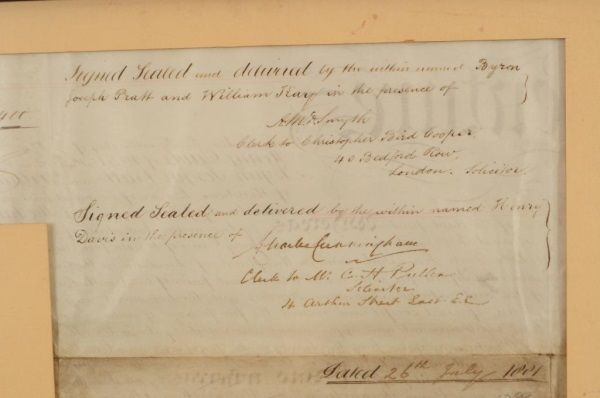 Signed Sealed and delivered by the within named Byron
Joseph Pratt and William Kay in the presence of
Smyth
Clerk to Christopher Bird Cooper
40 Bedford Row,
London. Solicitor.
Signed Sealed and delivered by the within named Henry
Davis in the presence of
Charles Cunningham
Clerk to Mr. C. H
Solicitor
4 Arthur Street East E.C.
Dated 26th July 1881